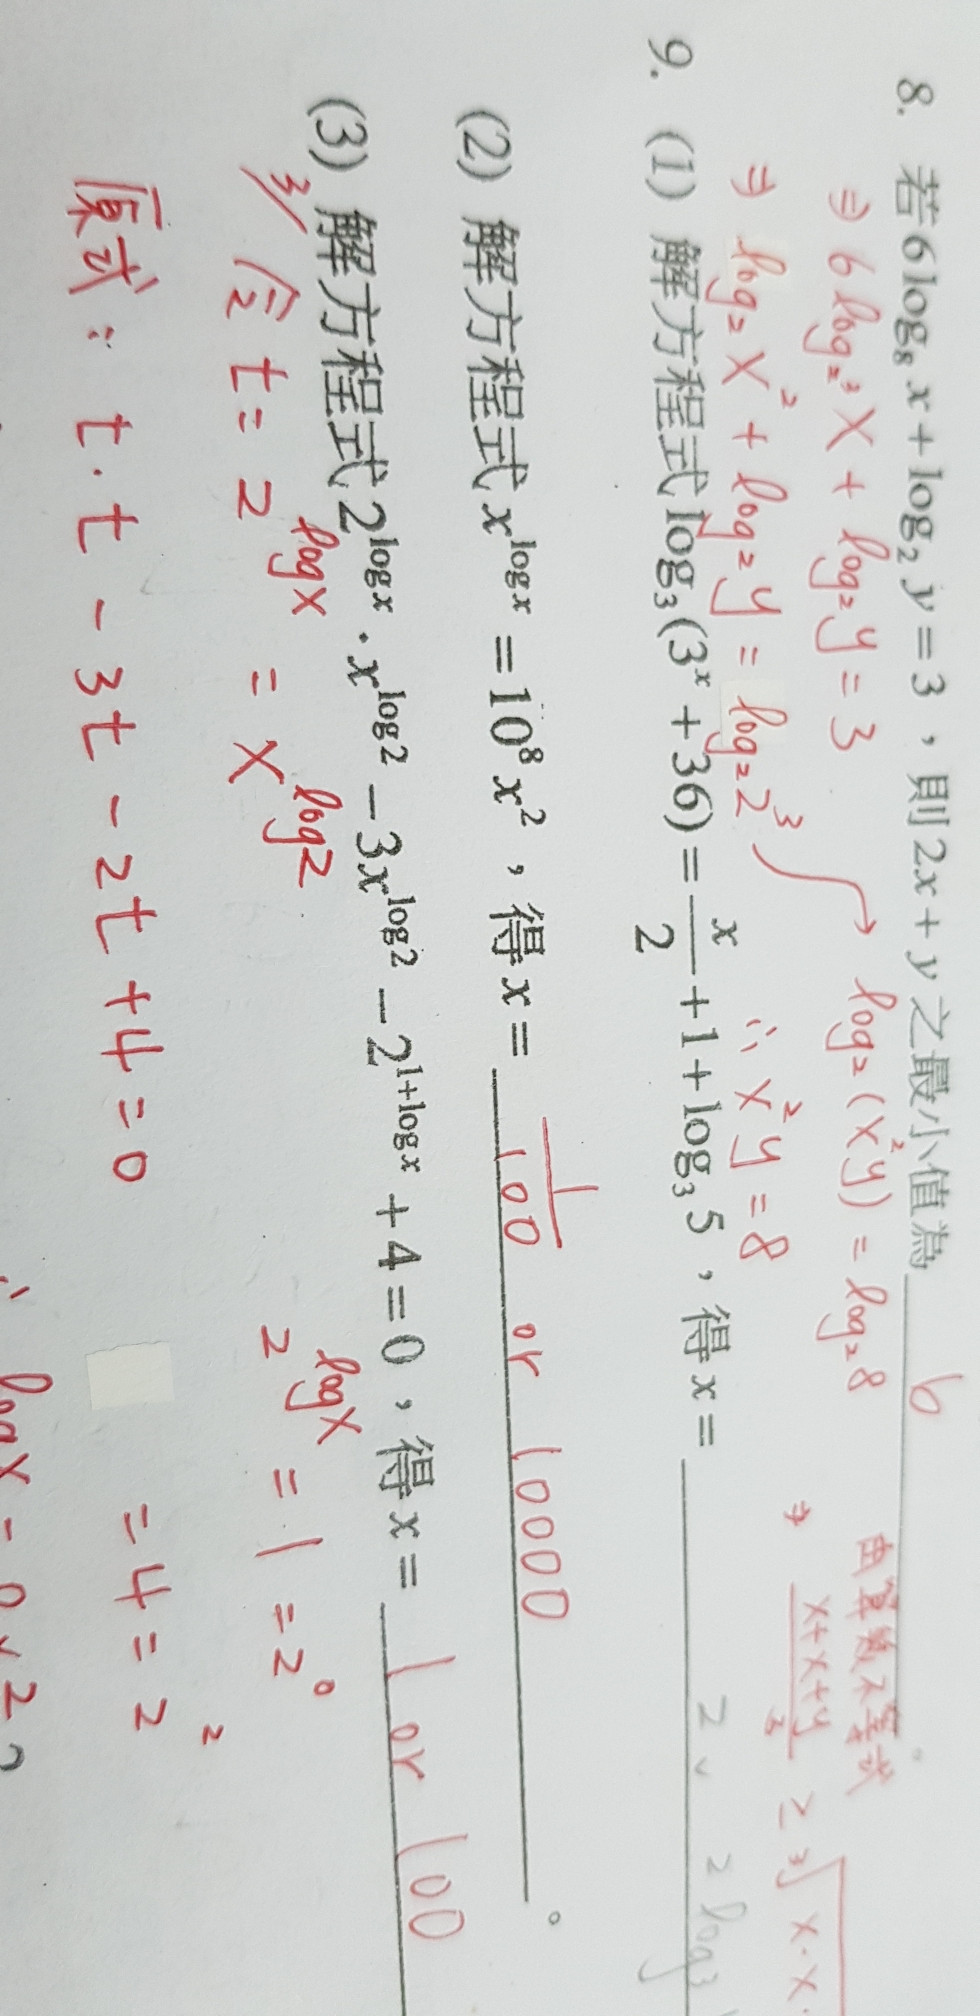 8. 若6log₈x+log₂y=3，則2x+y之最小值為 6 。
⇒ 6log₂³X + log₂y = 3 log₂(X²y) = log₂8 由算數不等式
⇒ log₂X² + log₂y = log₂2³ ∴ X²y = 8 ⇒ (x+x+y)/3 ≥ ³√x·x·
9. (1) 解方程式log₃(3ˣ+36)=x/2+1+log₃5，得x= 2、2log₃
(2) 解方程式x^(logx)=10⁸x²，得x= 1/100 or 10000 。
(3) 解方程式2^(logx)·x^(log2)−3x^(log2)−2^(1+logx)+4=0，得x= 1 or 100
3/ 令 t = 2^(logx) = X^(log2) 2^(logx) = 1 = 2⁰
原式: t·t − 3t − 2t + 4 = 0 = 4 = 2²
∴ logX = 0、2